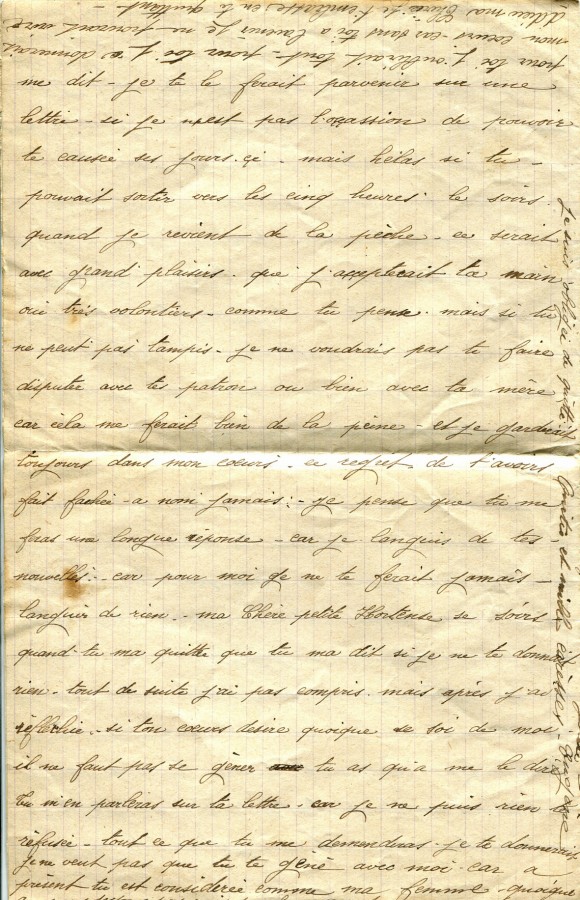 me dit - je te le ferait parvenir sur une
lettre - si je n'est pas l'occassion de pouvoir
te causée ses jours. çi - mais hélas si tu -
pouvait sortir vers les cinq heures le soirs -
quand je revient de la pèche - ce serait
avec grand plaisirs - que j'accepterait ta main
oui très volontiers - comme tu pense - mais si tu
ne peut pas tampis - je ne voudrais pas te faire
disputer avec tes patron ou bien avec ta mère
car cèla me ferait bien de la peine - et je garderait
toujours dans mon coeurs - ce regret de t'avoirs
fait fachée - a nom jamais - je pense que tu me
feras une longue réponse - car je languis de tes -
nouvelles - car pour moi je ne te ferait jamais -
languir de rien - ma Chère petite Hortense se soirs
quand tu ma quittée que tu ma dit si je ne te donnait
rien - tout de suite j'ai pas compris - mais après j'ai
réflechie - si ton coeurs desire quoique se soi de moi -
il ne faut pas se gèner tu as qu'a me le dire
Tu m'en parleras sur ta lettre - car je ne puis rien te
réfusée - tout ce que tu me demendras - je te donnerait
je ne veut pas que tu te gène avec moi - car a
présent tu est considérée comme ma femme - quoique
pour toi j'oublirait tout - pour toi je donnerait
mon coeurs - car sans toi a l'avenir je ne pourrait vivre
adieu ma Chérie je t'embrasse en te quittant -
Je suis obligée de quitter
et mille caresses Eugène